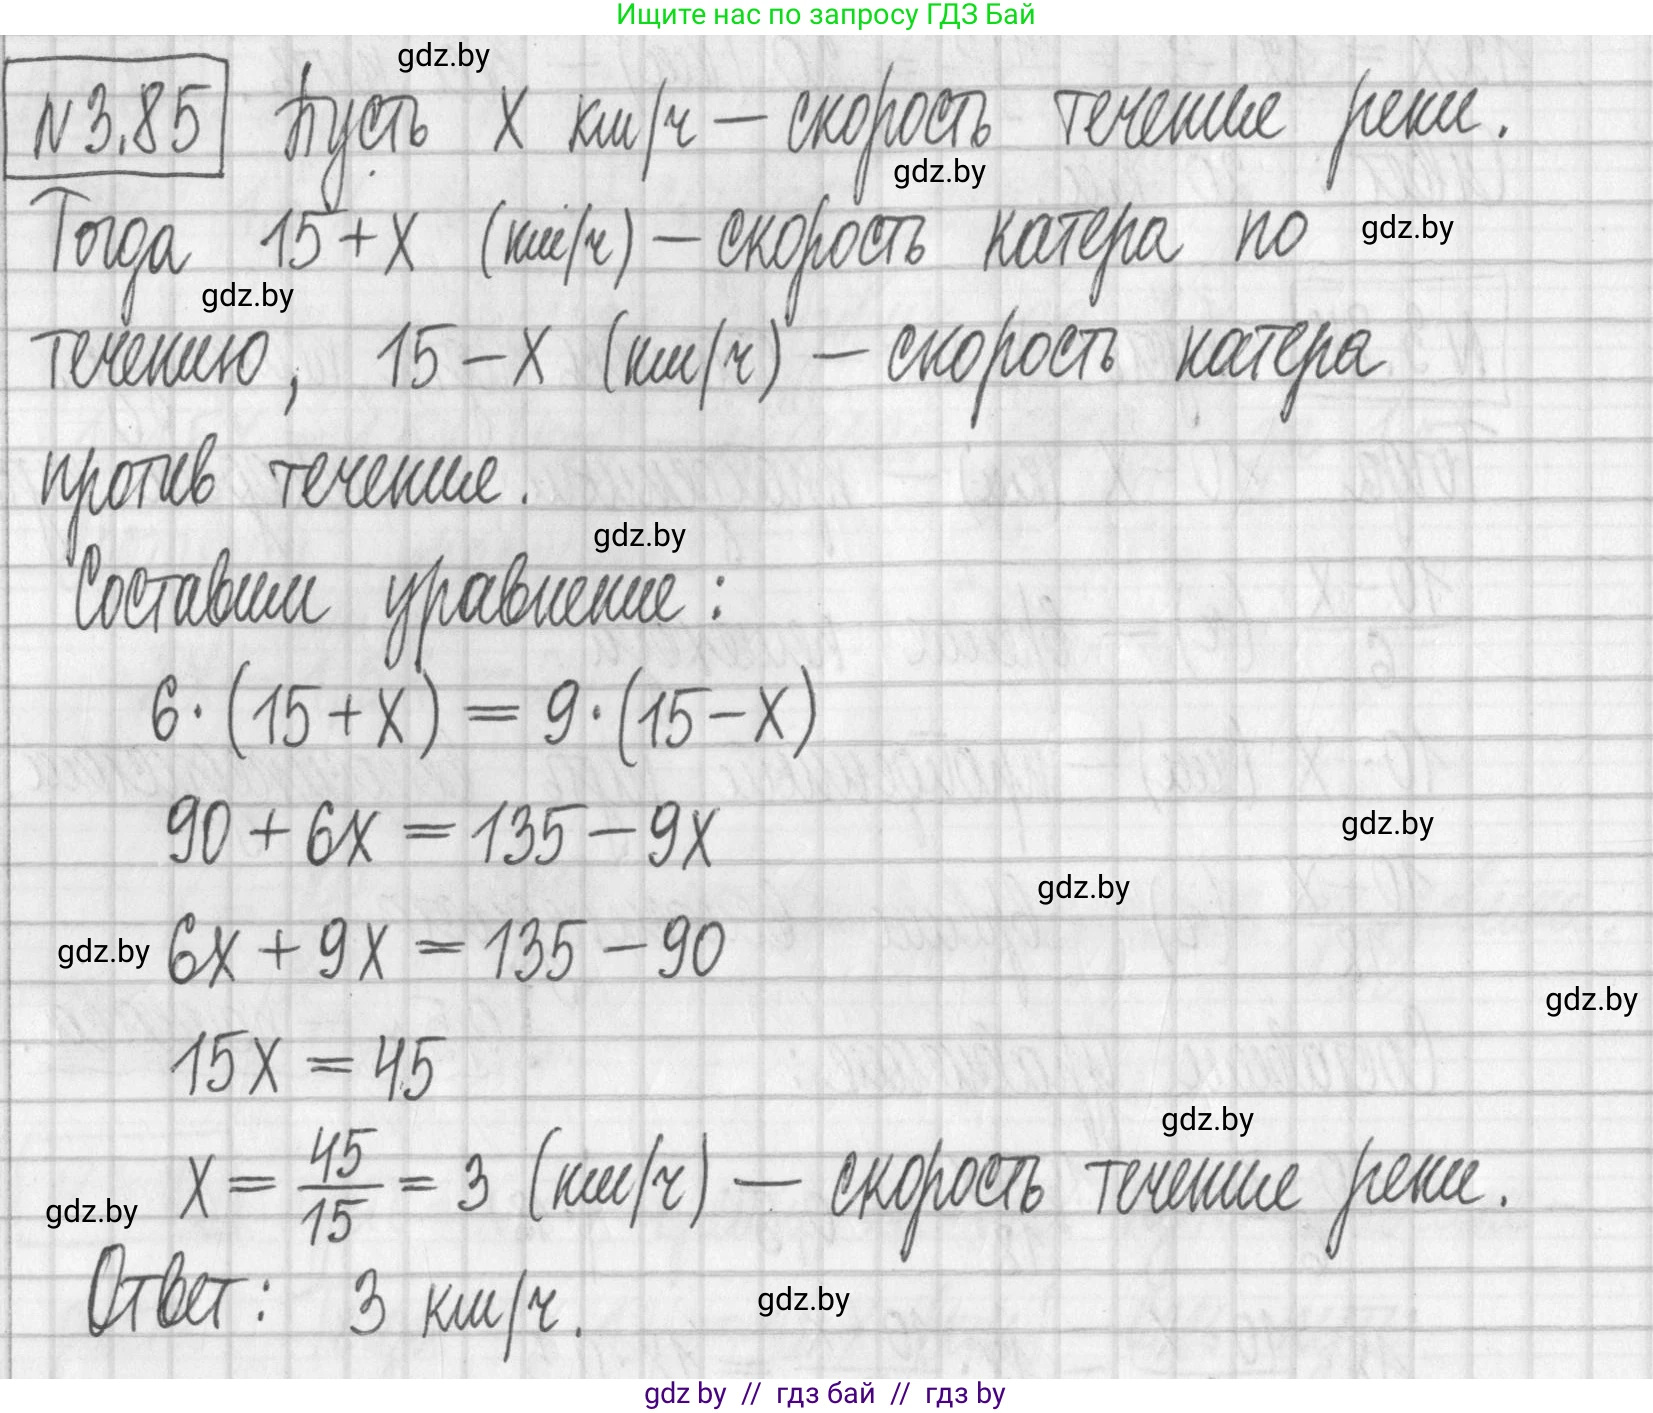 Ищите нас по запросу ГДЗ Бай
gdz.by
N3.85 Пусть x км/ч — скорость течение реки.
gdz.by
Тогда 15+x (км/ч) — скорость катера по gdz.by
gdz.by
течению, 15-x (км/ч) — скорость катера
против течение.
gdz.by
Составим уравнение:
6·(15+x) = 9·(15-x)
90+6x = 135-9x
gdz.by
gdz.by
gdz.by 6x+9x = 135-90
gdz.by
15x = 45
gdz.by
x = 45/15 = 3 (км/ч) — скорость течение реки.
gdz.by
Ответ: 3 км/ч.
gdz.by
gdz by // гдз бай // гдз by